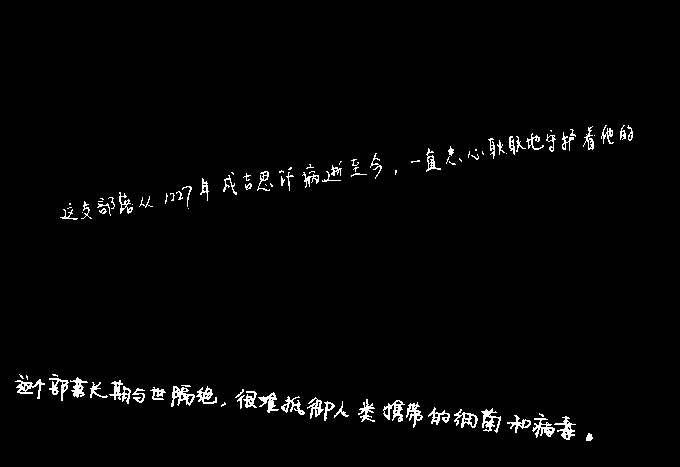 这支部落从1227年成吉思汗病逝至今，一直忠心耿耿地守护着他的
这个部落长期与世隔绝，很难抵御人类携带的细菌和病毒。